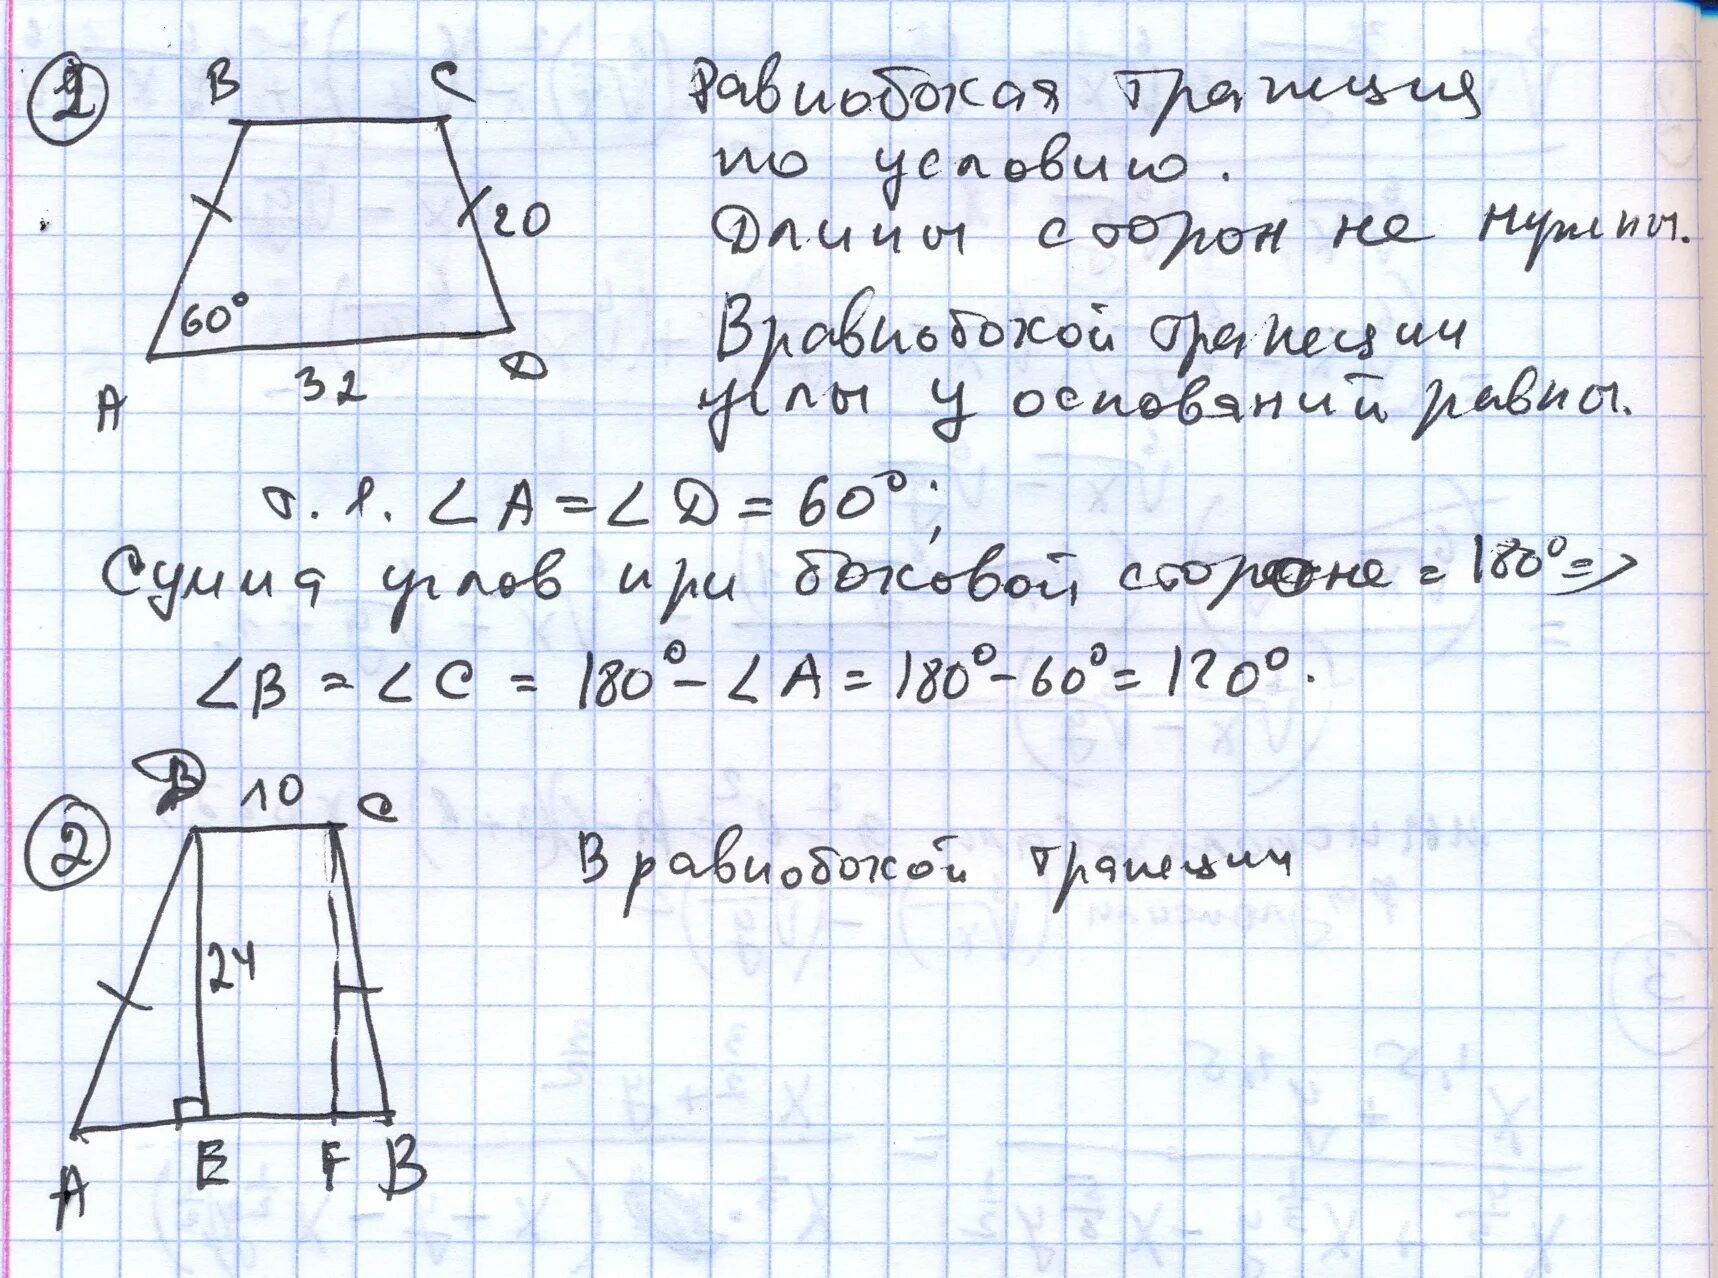 1 B C Равнобокая трапеция
по условию.
20 Длины сторон не нужны.
60° В равнобокой трапеции
A 32 D углы у оснований равны.
т. к. ∠A = ∠D = 60°;
Сумма углов при боковой стороне = 180° =>
∠B = ∠C = 180° - ∠A = 180° - 60° = 120°.
B 10 C
2 В равнобокой трапеции
24
A E F B